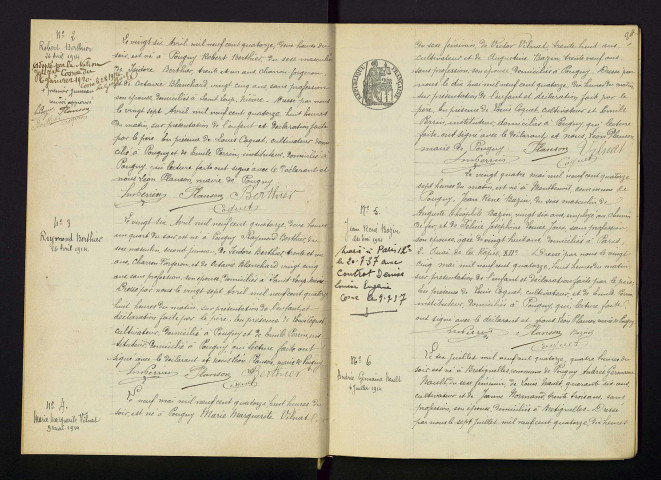 N° 2
Robert Berthier
26 Avril 1914
Le vingt six Avril mil neuf cent quatorze, deux heures du
soir, est né à Pougny Robert Berthier, du sexe masculin
de Isidore Berthier, trente et un ans, charron forgeron
et de Octavie Blanchard vingt cinq ans sans profession
son épouse, domiciliés à Saint Loup, Nièvre. Dressé par nous
le vingt sept Avril mil neuf cent quatorze, huit heures
du matin, sur présentation de l'enfant et déclaration faite
par le père. En présence de Louis Coquet, cultivateur, domi-
cilié à Pougny et de Emile Perrin, instituteur, domicilié à
Pougny, qui lecture faite ont signé avec le déclarant et
nous Léon Planson, maire de Pougny
Planson Berthier
Coquet
N° 3
Raymond Berthier
26 Avril 1914
Le vingt six Avril mil neuf cent quatorze, deux heures
un quart du soir est né à Pougny Raymond Berthier, du
sexe masculin, second jumeau, de Isidore Berthier, trente et un
ans, charron forgeron, et de Octavie Blanchard vingt cinq
ans, sans profession, son épouse, domiciliés à Saint Loup, Nièvre
Dressé par nous le vingt sept Avril mil neuf cent quatorze
huit heures du matin, sur présentation de l'enfant et
déclaration faite par le père. En présence de Louis Coquet,
cultivateur, domicilié à Pougny et de Emile Perrin, ins-
tituteur, domicilié à Pougny, qui lecture faite ont
signé avec le déclarant et nous Léon Planson, maire de Pougny
Planson Berthier
Coquet
N° 4
Marie Marguerite Vilnat
9 mai 1914
Le neuf mai mil neuf cent quatorze huit heures du
soir, est né à Pougny Marie Marguerite Vilnat
RÉPUBLIQUE FRANÇAISE
du sexe féminin, de Victor Vilnat, trente huit ans,
cultivateur et de Augustine Bazin, trente neuf ans,
sans profession, son épouse, domiciliés à Pougny. Dressé par
nous le dix mai mil neuf cent quatorze, dix heures du matin
sur présentation de l'enfant et déclaration faite par le
père. En présence de Louis Coquet, cultivateur et Emile
Perrin, instituteur, domiciliés à Pougny, qui lecture
faite, ont signé avec le déclarant et nous, Léon Planson
maire de Pougny
Planson Vilnat
Coquet
N° 5
Jean René Bazin
24 mai 1914
Marié à Paris 12e
le 20-7-37 avec
Contrat Denise
Louise Eugénie
Le vingt quatre mai mil neuf cent quatorze
sept heures du matin, est né à Montbenoit, commune de
Pougny, Jean René Bazin, du sexe masculin de
Auguste Théophile Bazin, vingt six ans, employé au chemin
de fer, et de Félicie Joséphine
son épouse, âgée de vingt huit ans, domiciliés à Paris
2 Quai de la Rapée XIIe. Dressé par nous le vingt
cinq mai mil neuf cent quatorze, huit heures du matin
sur présentation de l'enfant et déclaration faite par le père.
En présence de Louis Coquet, cultivateur, et de Emile Perrin
instituteur, domiciliés à Pougny, qui lecture faite
ont signé avec le déclarant et nous Léon Planson, maire de Pougny
Planson Bazin
Coquet
N° 6
Andrée Germaine
6 Juillet 1914
Le six juillet mil neuf cent quatorze, quatre heures du
soir est né à Batignolles commune de Pougny Andrée Germaine
du sexe féminin, de Louis
cultivateur et de Jeanne
profession, son épouse, domiciliés à Batignolles. Dressé
par nous le sept juillet mil neuf cent quatorze, dix heures